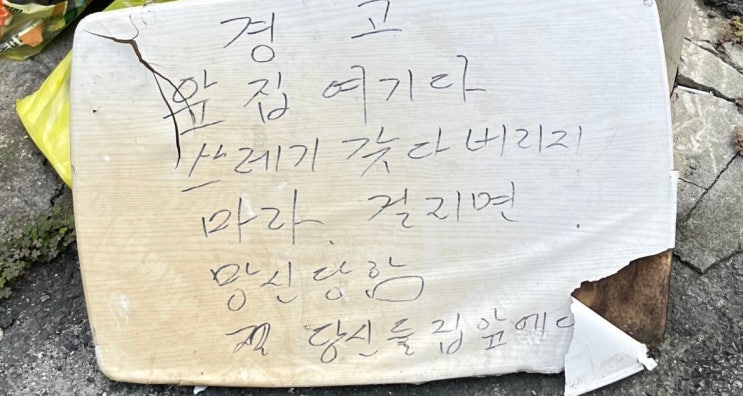 경 고
앞집 여기다
쓰레기 갖다 버리지
마라. 걸리면
망신당함
당신들 집앞에